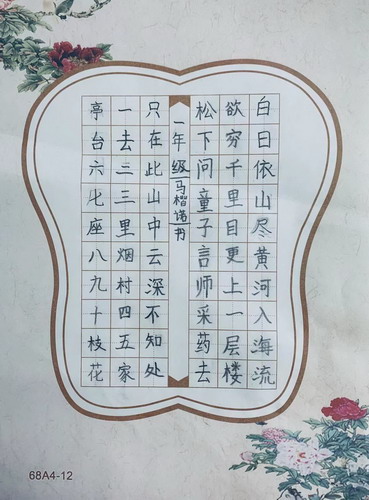 白日依山尽黄河入海流
欲穷千里目更上一层楼
松下问童子言师采药去
一年级马楷诺书
只在此山中云深不知处
一去二三里烟村四五家
亭台六七座八九十枝花
68A4-12